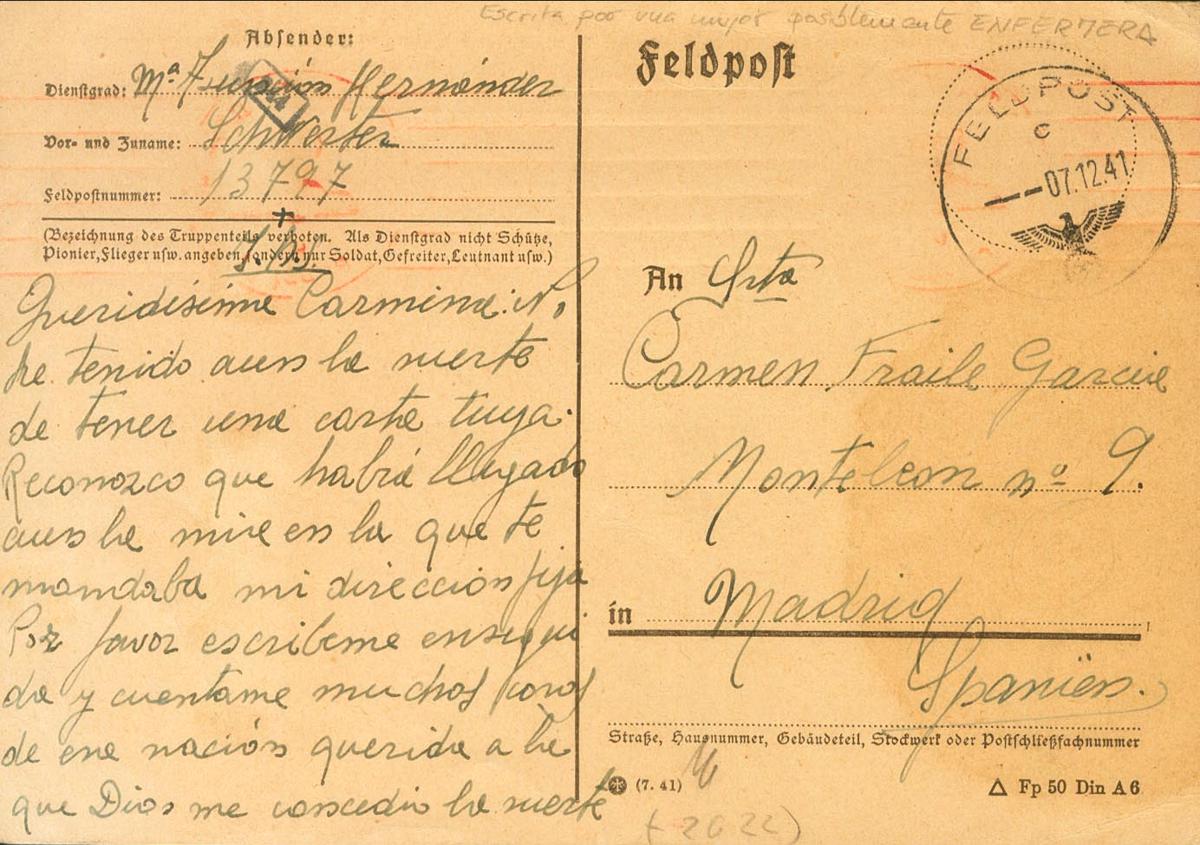 Escrita por una mujer posiblemente ENFERMERA
Absender:
Dienstgrad: Mª Hernández
Vor- und Zuname: Schwester
Feldpostnummer: 13797
(Bezeichnung des Truppenteils verboten. Als Dienstgrad nicht Schütze,
Pionier, Flieger usw. angeben, sondern nur Soldat, Gefreiter, Leutnant usw.)
Queridísima Carmina: No
he tenido aun la suerte
de tener una carta tuya.
Reconozco que habrá llegado
aun la mia en la que te
mandaba mi dirección fija
Por favor escribeme ensegui
da y cuentame muchas cosas
de esa nación querida a la
que Dios me concedió la suerte
Feldpost
FELDPOST
c
07.12.41
An Srta
Carmen Fraile Garcia
Monteleon nº 9.
in Madrid
Spanien.
Straße, Hausnummer, Gebäudeteil, Stockwerk oder Postschließfachnummer
(7. 41)
△ Fp 50 Din A 6
(2622)